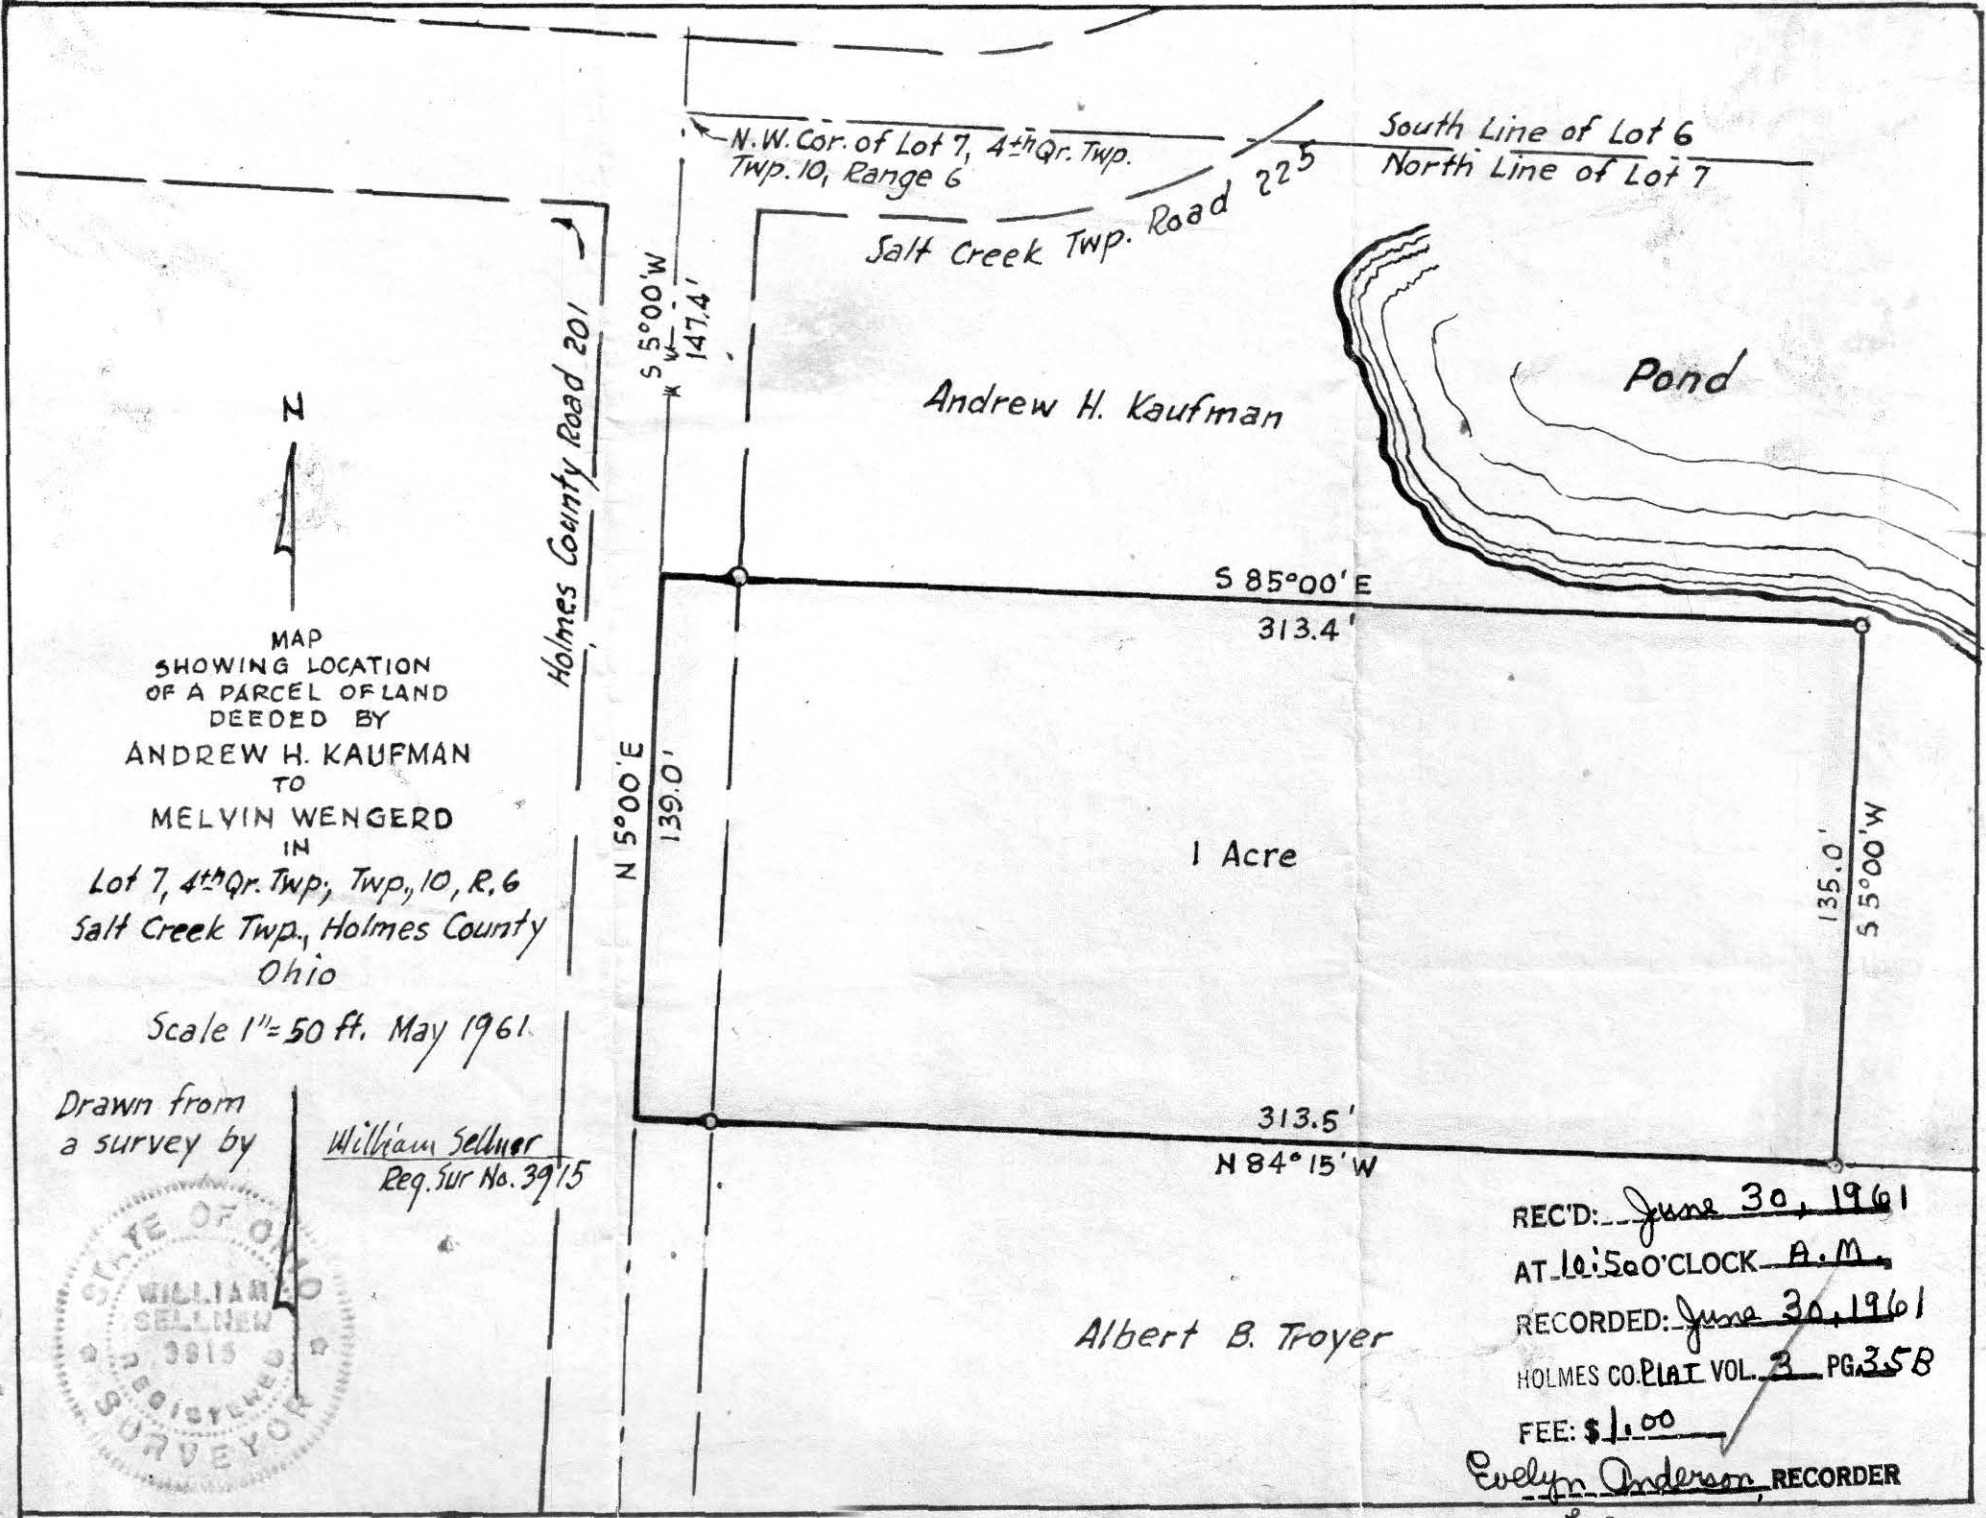 N.W. Cor. of Lot 7, 4th Qr. Twp.
Twp. 10, Range 6
South Line of Lot 6
North Line of Lot 7
Salt Creek Twp. Road 225
S 5°00' W
147.4'
Holmes County Road 201
Andrew H. Kaufman
Pond
N
MAP
SHOWING LOCATION
OF A PARCEL OF LAND
DEEDED BY
ANDREW H. KAUFMAN
TO
MELVIN WENGERD
IN
Lot 7, 4th Qr. Twp., Twp., 10, R. 6
Salt Creek Twp., Holmes County
Ohio
Scale 1"=50 ft. May 1961.
Drawn from
a survey by
William Sellner
Reg. Sur No. 3915
STATE OF OHIO
WILLIAM
SELLNER
3915
REGISTERED
SURVEYOR
S 85°00' E
313.4'
N 5°00' E
139.0'
1 Acre
135.0'
S 5°00' W
313.5'
N 84°15' W
Albert B. Troyer
REC'D: June 30, 1961
AT 10:50 O'CLOCK A.M.
RECORDED: June 30, 1961
HOLMES CO. PLAT VOL. 3 PG. 35B
FEE: $1.00
Evelyn Anderson, RECORDER